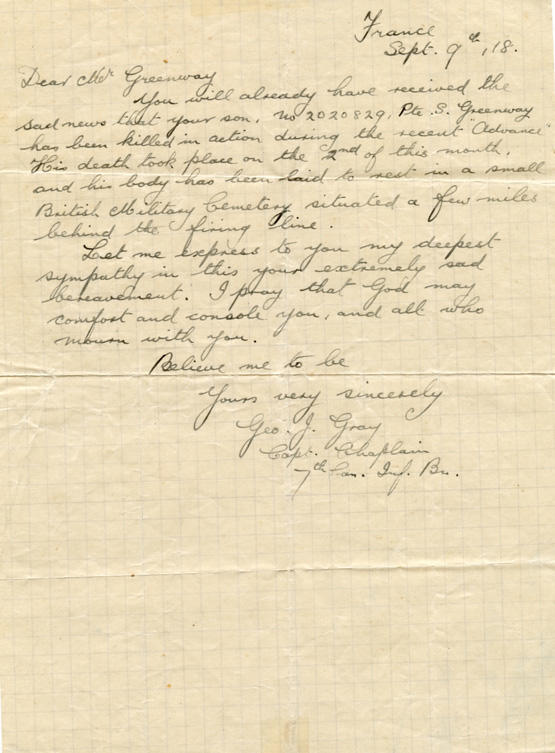 France
Sept. 9th, 18.
Dear Mr Greenway
You will already have received the
sad news that your son, No 2020829, Pte. S. Greenway
has been killed in action during the recent "Advance"
His death took place on the 2nd of this month,
and his body has been laid to rest in a small
British Military Cemetery situated a few miles
behind the firing line.
Let me express to you my deepest
sympathy in this your extremely sad
bereavement. I pray that God may
comfort and console you, and all who
mourn with you.
Believe me to be
Yours very sincerely
Geo. J. Gray
Capt. Chaplain
7th Can. Inf. Bn.